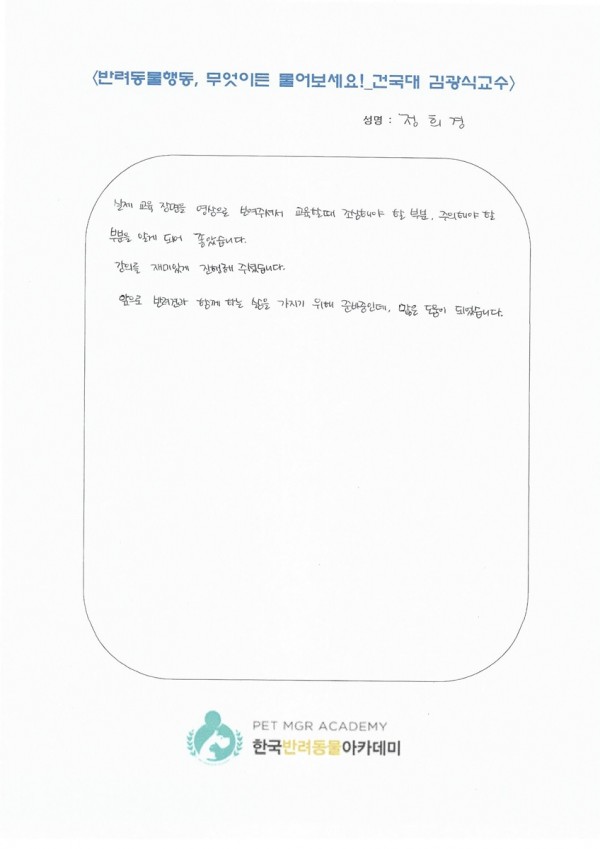 <반려동물행동, 무엇이든 물어보세요!_건국대 김광식교수>
성명 : 정 희 경
실제 교육 장면을 영상으로 보여주셔서 교육할때 조심해야 할 부분, 주의해야 할
부분을 알게 되어 좋았습니다.
강의를 재미있게 진행해 주셨습니다.
앞으로 반려견과 함께 하는 삶을 가지기 위해 준비중인데, 많은 도움이 되었습니다.
PET MGR ACADEMY
한국반려동물아카데미